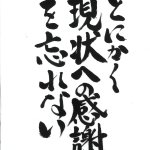 とにかく
現状への感謝
を忘れない